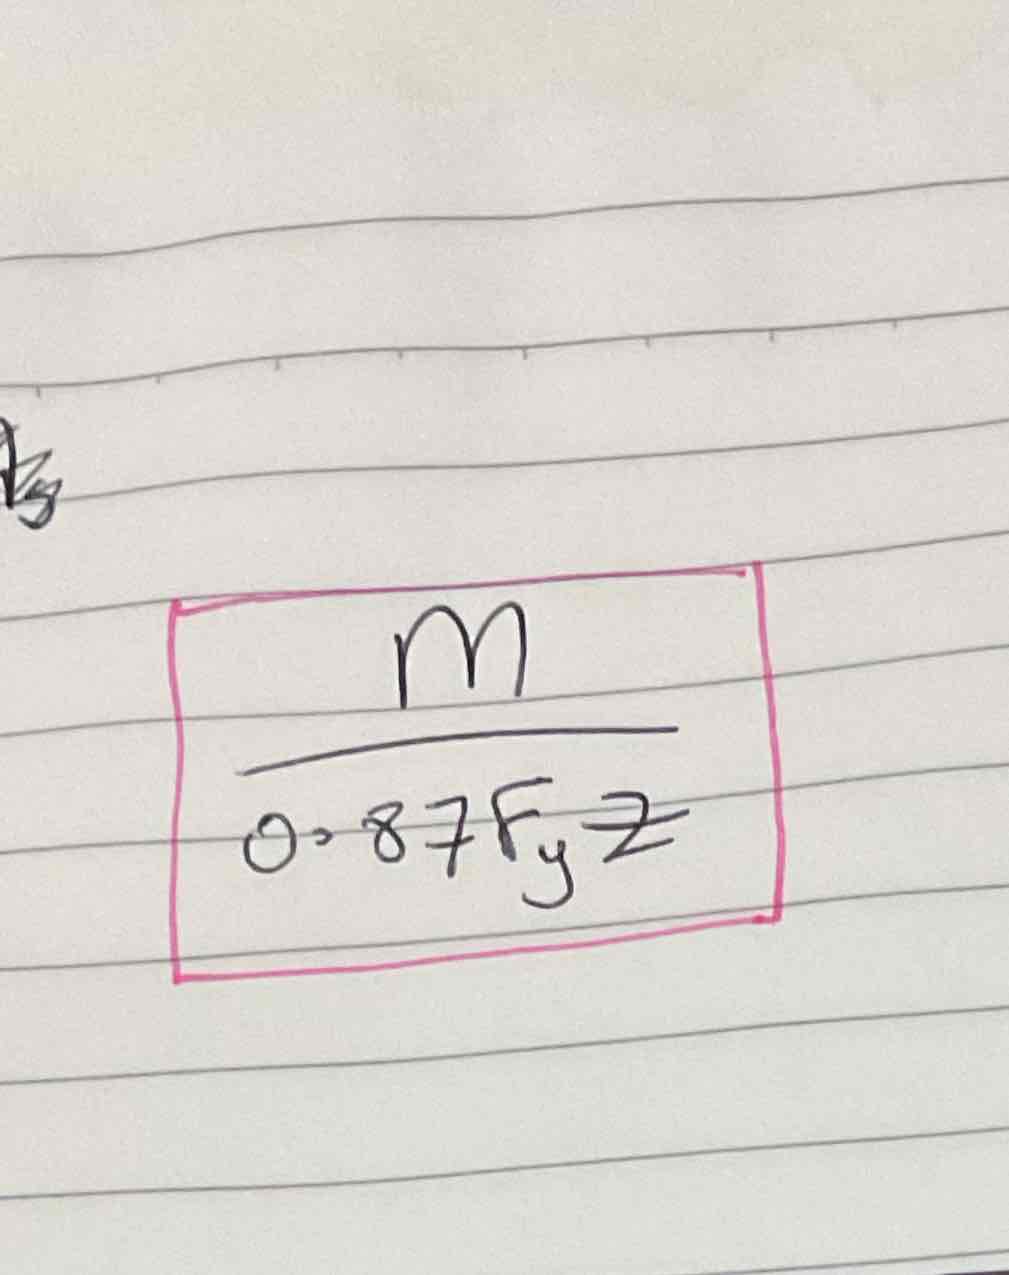 M
0.87FyZ